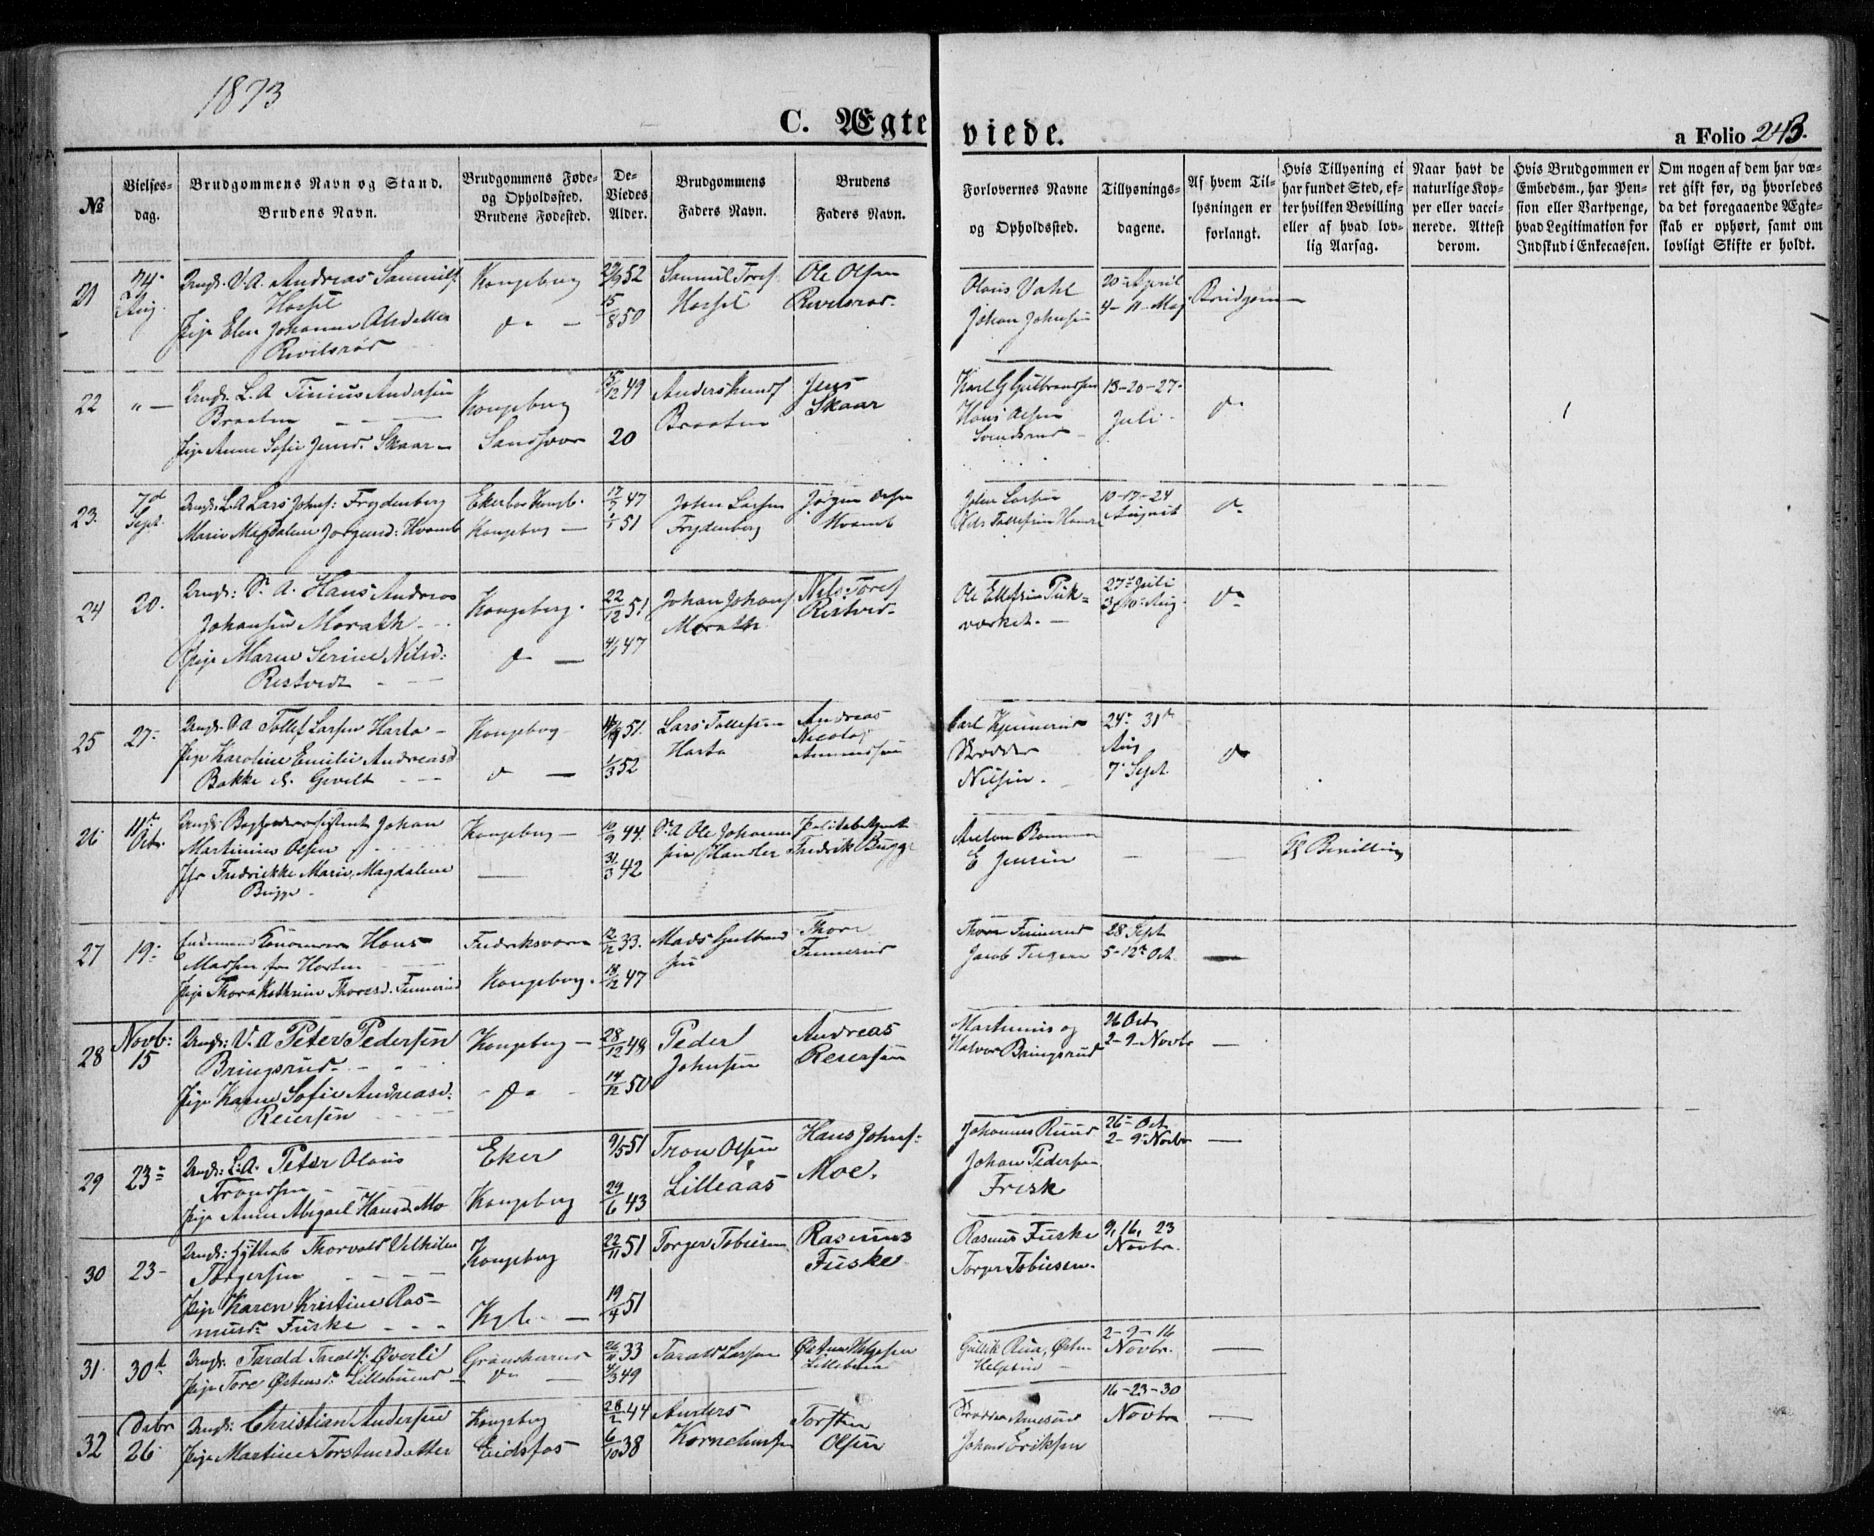 1873
C. Ægteviede.
a Folio 243.
No
Vielses-
dag.
Brudgommens Navn og Stand.
Brudens Navn.
Brudgommens Føde-
og Opholdssted.
Brudens Fødested.
De
Viedes
Alder.
Brudgommens
Faders Navn.
Brudens
Faders Navn.
Forlovernes Navne
og Opholdssted.
Tillysnings-
dagene.
Af hvem Til-
lysningen er
forlangt.
Hvis Tillysning ei
har fundet Sted, ef-
ter hvilken Bevilling
eller af hvad lov-
lig Aarsag.
Naar havt de
naturlige Kop-
per eller vacci-
nerede. Attest
derom.
Hvis Brudgommen er
Embedsm., har Pen-
sion eller Vartpenge,
hvad Legitimation for
Indskud i Enkecassen.
Om nogen af dem har væ-
ret gift før, og hvorledes
da det foregaaende Ægte-
skab er ophørt, samt om
lovligt Skifte er holdt.
21
24
Aug.
Ungk. V. A. Andreas Samuels.
Hassel
Pige Elen Johanne Olsdatter
Revilsrød
Kongsberg
do
52
15/8 50
Samuel Tores.
Hassel
Ole Olsen
Revilsrød.
Olaus Vahl
Johan Johnsen
20 April
4- 11 Maj
Brudgom
22
" —
Ungk. L. A. Tinius Andersen
Braaten
Pige Anne Sofie Jensd. Skaar
Kongsberg
Sandsvær
15/12 49
20
Anders Knuds.
Braaten
Jens
Skaar
Karl G Gulbrandsen
Hans Olsen
Svendsrud
13-20-27.
Juli
do
23.
7d
Sept.
Ungk. L. A. Lars Johns: Frydenberg
Marie Magdalene Jørgensd: Kvamb
Eker boe Kongsb.
Kongsberg
47
51
John Larsen
Frydenberg
Jørgen Olsen
Kvamb
John Larsen
Nils Tollefsen
10-17-24
August
do
24
20.
Ungk: S. A. Hans Andreas
Johansen Morath
Pige Maren Serine Nilsd:
Restvedt
Kongsberg.
do
22/12 51
47
Johan Johans.
Morath
Nils Tores.
Restved.
Ole Ellefsen Puk-
værket.
27 Juli
3, 10 Aug.
do
25
27.
Ungk. S. A. Tollef Larsen Harta
Pige Karoline Emilie Andreasd
Bakke el. Gevelt
Kongsberg
do
51.
1/3 52
Lars Tollefsen
Harta
Andreas
Nicolaj
Amundsen
Carl Kjennerud
Nilsen.
24. 31
Aug
7. Sept.
do
26.
11te
Octr.
Ungk. Johan
Martinius Olsen
Jfr Fredrikke Marie Magdalene
Bugge
Kongsberg
44.
31/3 42
S. A. Ole Johanne-
sen
Politibetjent
Fredrik Bugge
Anton
E Jensen
Bevilling
27
19.
Enkemand Hans
Madsen fra Horten
Pige Thora Kathrine Thoresd. Funnerud
Fredriksværn
Kongsberg.
12/12 33.
18/12 47
Mads Gulbrand
sen
Thore
Funnerud
Thore Funnerud
Jacob
28 Sept
5-12te Oct.
28
Novb:
15
Ungk: V. A. Peter Pedersen
Bringsrud
Pige Karen Sofie Andreasd:
Reiersen
Kongsberg
do
28/12 48
14/12 50
Peder
Johnsen
Andreas
Reiersen
Martinius og
Halvor Bringsrud
26 Octr
2-9-Novbr
29
23
Ungk: L. A. Peter Olaus
Trondsen
Pige Anne Abigael Hansd. Mo
Eker
Kongsberg
9/5 51
29/6 43
Tron Olsen
Lilleaas
Hans Johns:
Moe.
Johannes Ruud
Johan Pedersen
Frisk
26 Oct
2-9 Novbr
30
23
Ungk: Thorvald Vilhelm
Torgersen
Pige Karen Kristine Ras-
musd: Fuske
Kongsberg
Kgb.
22/11 51
19/4 51
Torger Tobiesen
Rasmus
Fuske
Rasmus Fuske
Torger Tobiesen.
9, 16, 23
Novbr.
31.
30d
Ungk. Tarald Taralds. Øverli
Pige Tore Østensd: Lillebuend
Granskerud
do
26/11 33
49
Tarald Larsen
Østen Helgesen
Lillebuen
Gullik Rua, Østen
Helgesen
2-9-16
Novbr
32
Decbr
26.
Ungk: Christian Andersen
Pige Martine Torstensdatter
Kongsberg
Eidsfos
28/2 44
6/10 38
Anders
Korneliusen
Torsten
Olsen
Johan Eriksen
16-23-30
Novbr